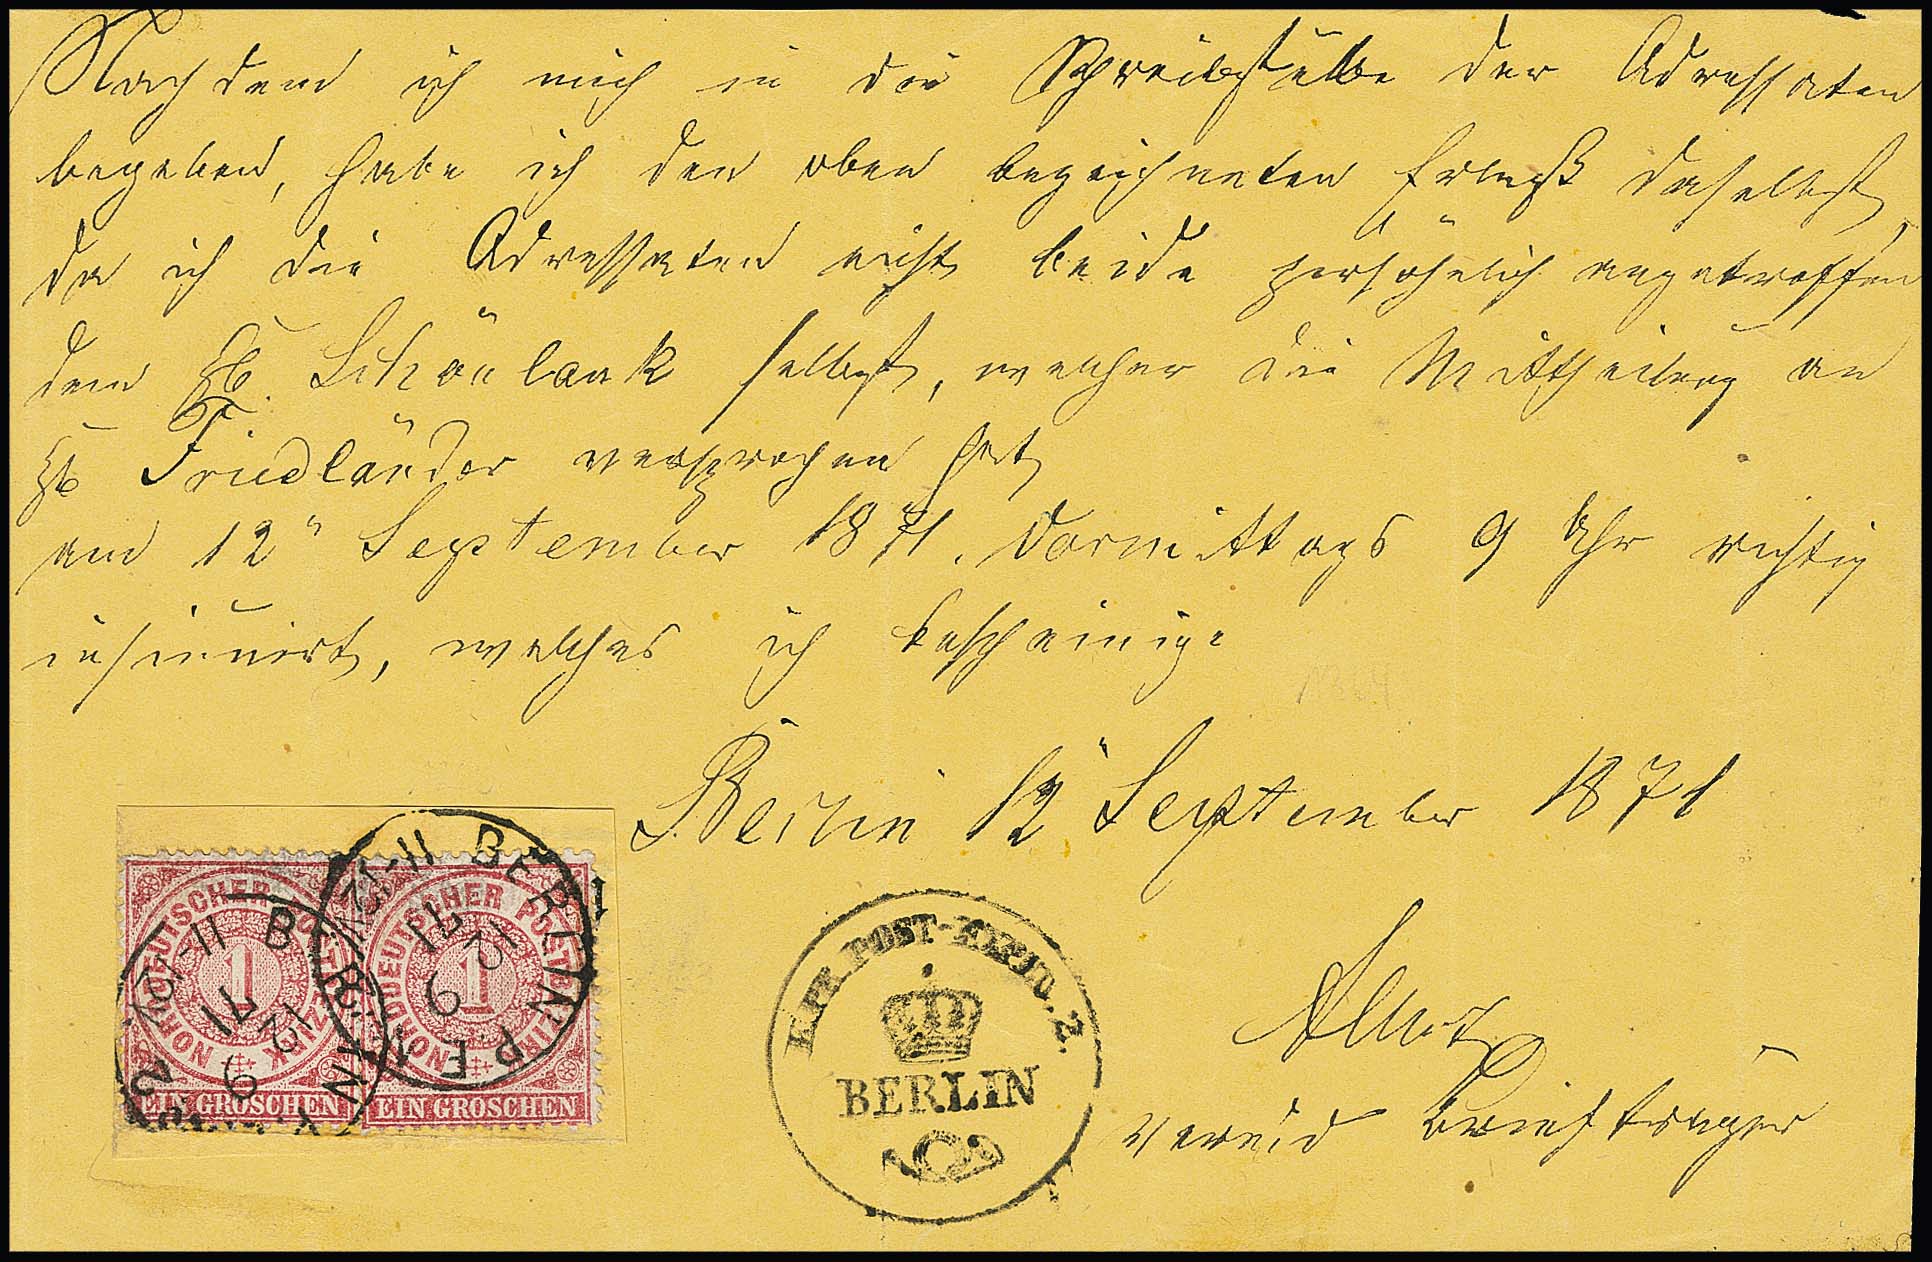 Nachdem ich mich in die Schreibstube der Adressaten
begeben, habe ich den oben bezeichneten Erlaß daselbst
da ich die Adressaten nicht beide persöhnlich angetroffen
dem Hr. Schönlank selbst, welcher die Mittheilung an
Hr. Friedländer versprochen hat
am 12" September 1871. Vormittags 9 Uhr richtig
insinuirt, welches ich bescheinige
Berlin 12" September 1871
vereid Briefträger
K. PR. POST-EXPED. 2.
BERLIN
NORDDEUTSCHER POSTBEZIRK
1
EIN GROSCHEN
NORDDEUTSCHER POSTBEZIRK
1
EIN GROSCHEN
BERLIN P.E.
12 9 71
BERLIN
12 9 71